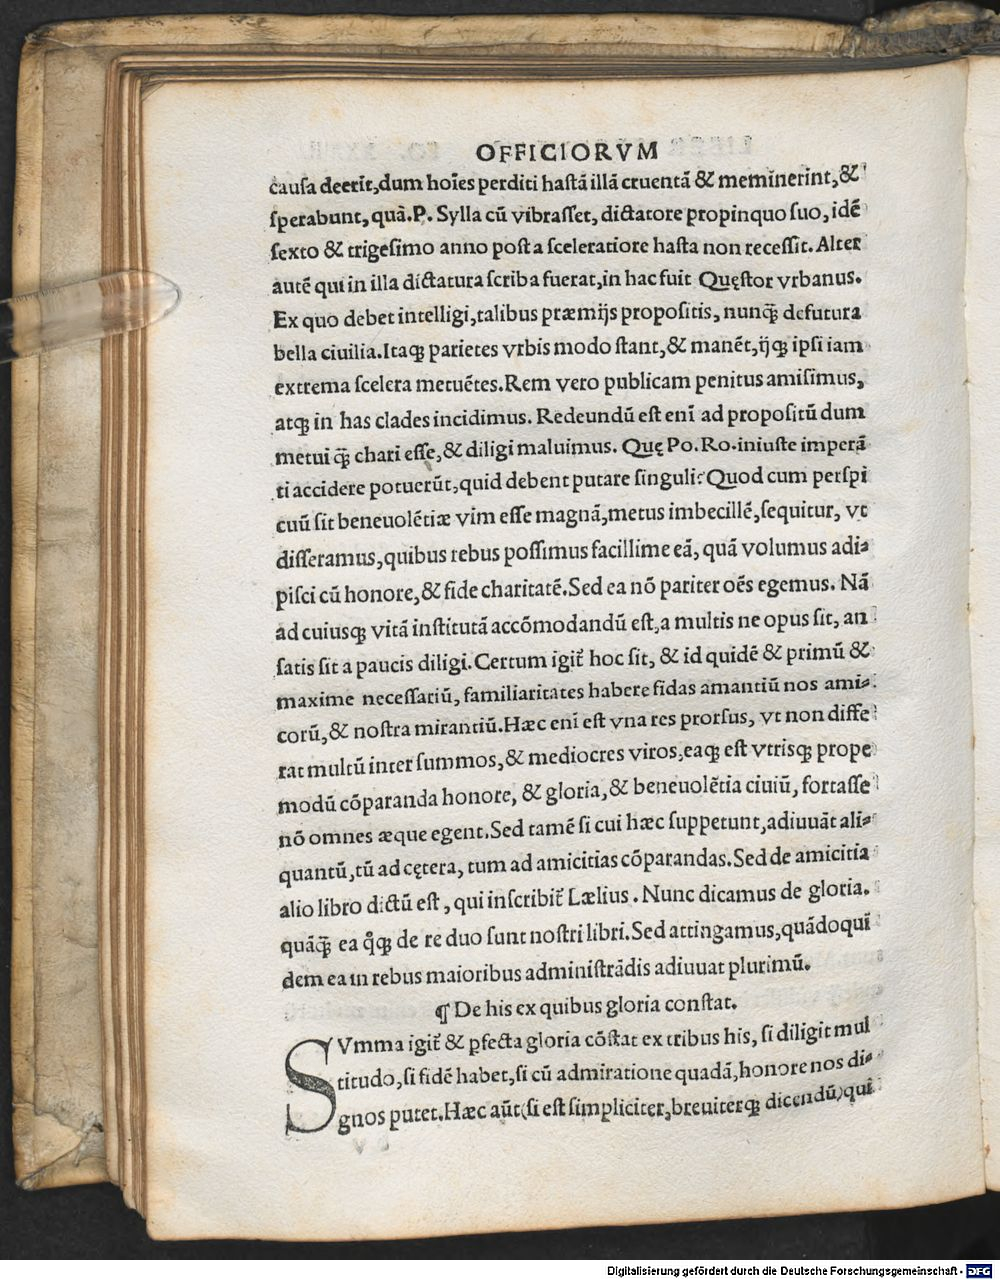 OFFICIORVM
cauſa deerit,dum hoīes perditi haſtā illā cruentā & meminerint,&
ſperabunt, quā.P. Sylla cū vibraſſet, dictatore propinquo ſuo, idē
ſexto & trigeſimo anno poſt a ſceleratiore haſta non receſſit. Alter
autē qui in illa dictatura ſcriba fuerat,in hac fuit Quęſtor vrbanus.
Ex quo debet intelligi,talibus præmijs propoſitis, nunꝗ̄ defutura
bella ciuilia.Itaqꝫ parietes vrbis modo ſtant,& manēt,ijqꝫ ipſi iam
extrema ſcelera metuētes.Rem vero publicam penitus amiſimus,
atqꝫ in has clades incidimus. Redeundū eſt enī ad propoſitū dum
metui ꝗ̄ chari eſſe,& diligi maluimus. Quę Po. Ro.iniuſte imperā
ti accidere potuerūt,quid debent putare ſinguli? Quod cum perſpi
cuū ſit beneuolētiæ vim eſſe magnā,metus imbecillē,ſequitur, vt
differamus,quibus rebus poſſimus facillime eā, quā volumus adi⸗
piſci cū honore,& fide charitatē.Sed ea nō pariter oēs egemus. Nā
ad cuiusqꝫ vitā inſtitutā accōmodandū eſt,a multis ne opus ſit, an
ſatis ſit a paucis diligi.Certum igit̃ hoc ſit, & id quidē & primū &
maxime neceſſariū, familiaritates habere fidas amantiū nos ami⸗
corū,& noſtra mirantiū.Hæc enī eſt vna res prorſus, vt non diffe
rat multū inter ſummos,& mediocres viros,eaqꝫ eſt vtrisqꝫ prope
modū cōparanda honore, & gloria,& beneuolētia ciuiū, fortaſſe
nō omnes æque egent.Sed tamē ſi cui hæc ſuppetunt,adiuuāt ali⸗
quantū,tū ad cętera, tum ad amicitias cōparandas.Sed de amicitia
alio libro dictū eſt, qui inſcribit̃ Lælius. Nunc dicamus de gloria.
quāꝗ̄ ea qͦqꝫ de re duo ſunt noſtri libri.Sed attingamus,quādoqui
dem ea in rebus maioribus adminiſtrādis adiuuat plurimū.
¶ De his ex quibus gloria conſtat.
SVmma igit̃ & ꝑfecta gloria cōſtat ex tribus his, ſi diligit mul
titudo,ſi fidē habet,ſi cū admiratione quadā,honore nos di⸗
gnos putet.Hæc aūt(ſi eſt ſimpliciter,breuiterqꝫ dicendū)qui
Digitalisierung gefördert durch die Deutsche Forschungsgemeinschaft - DFG